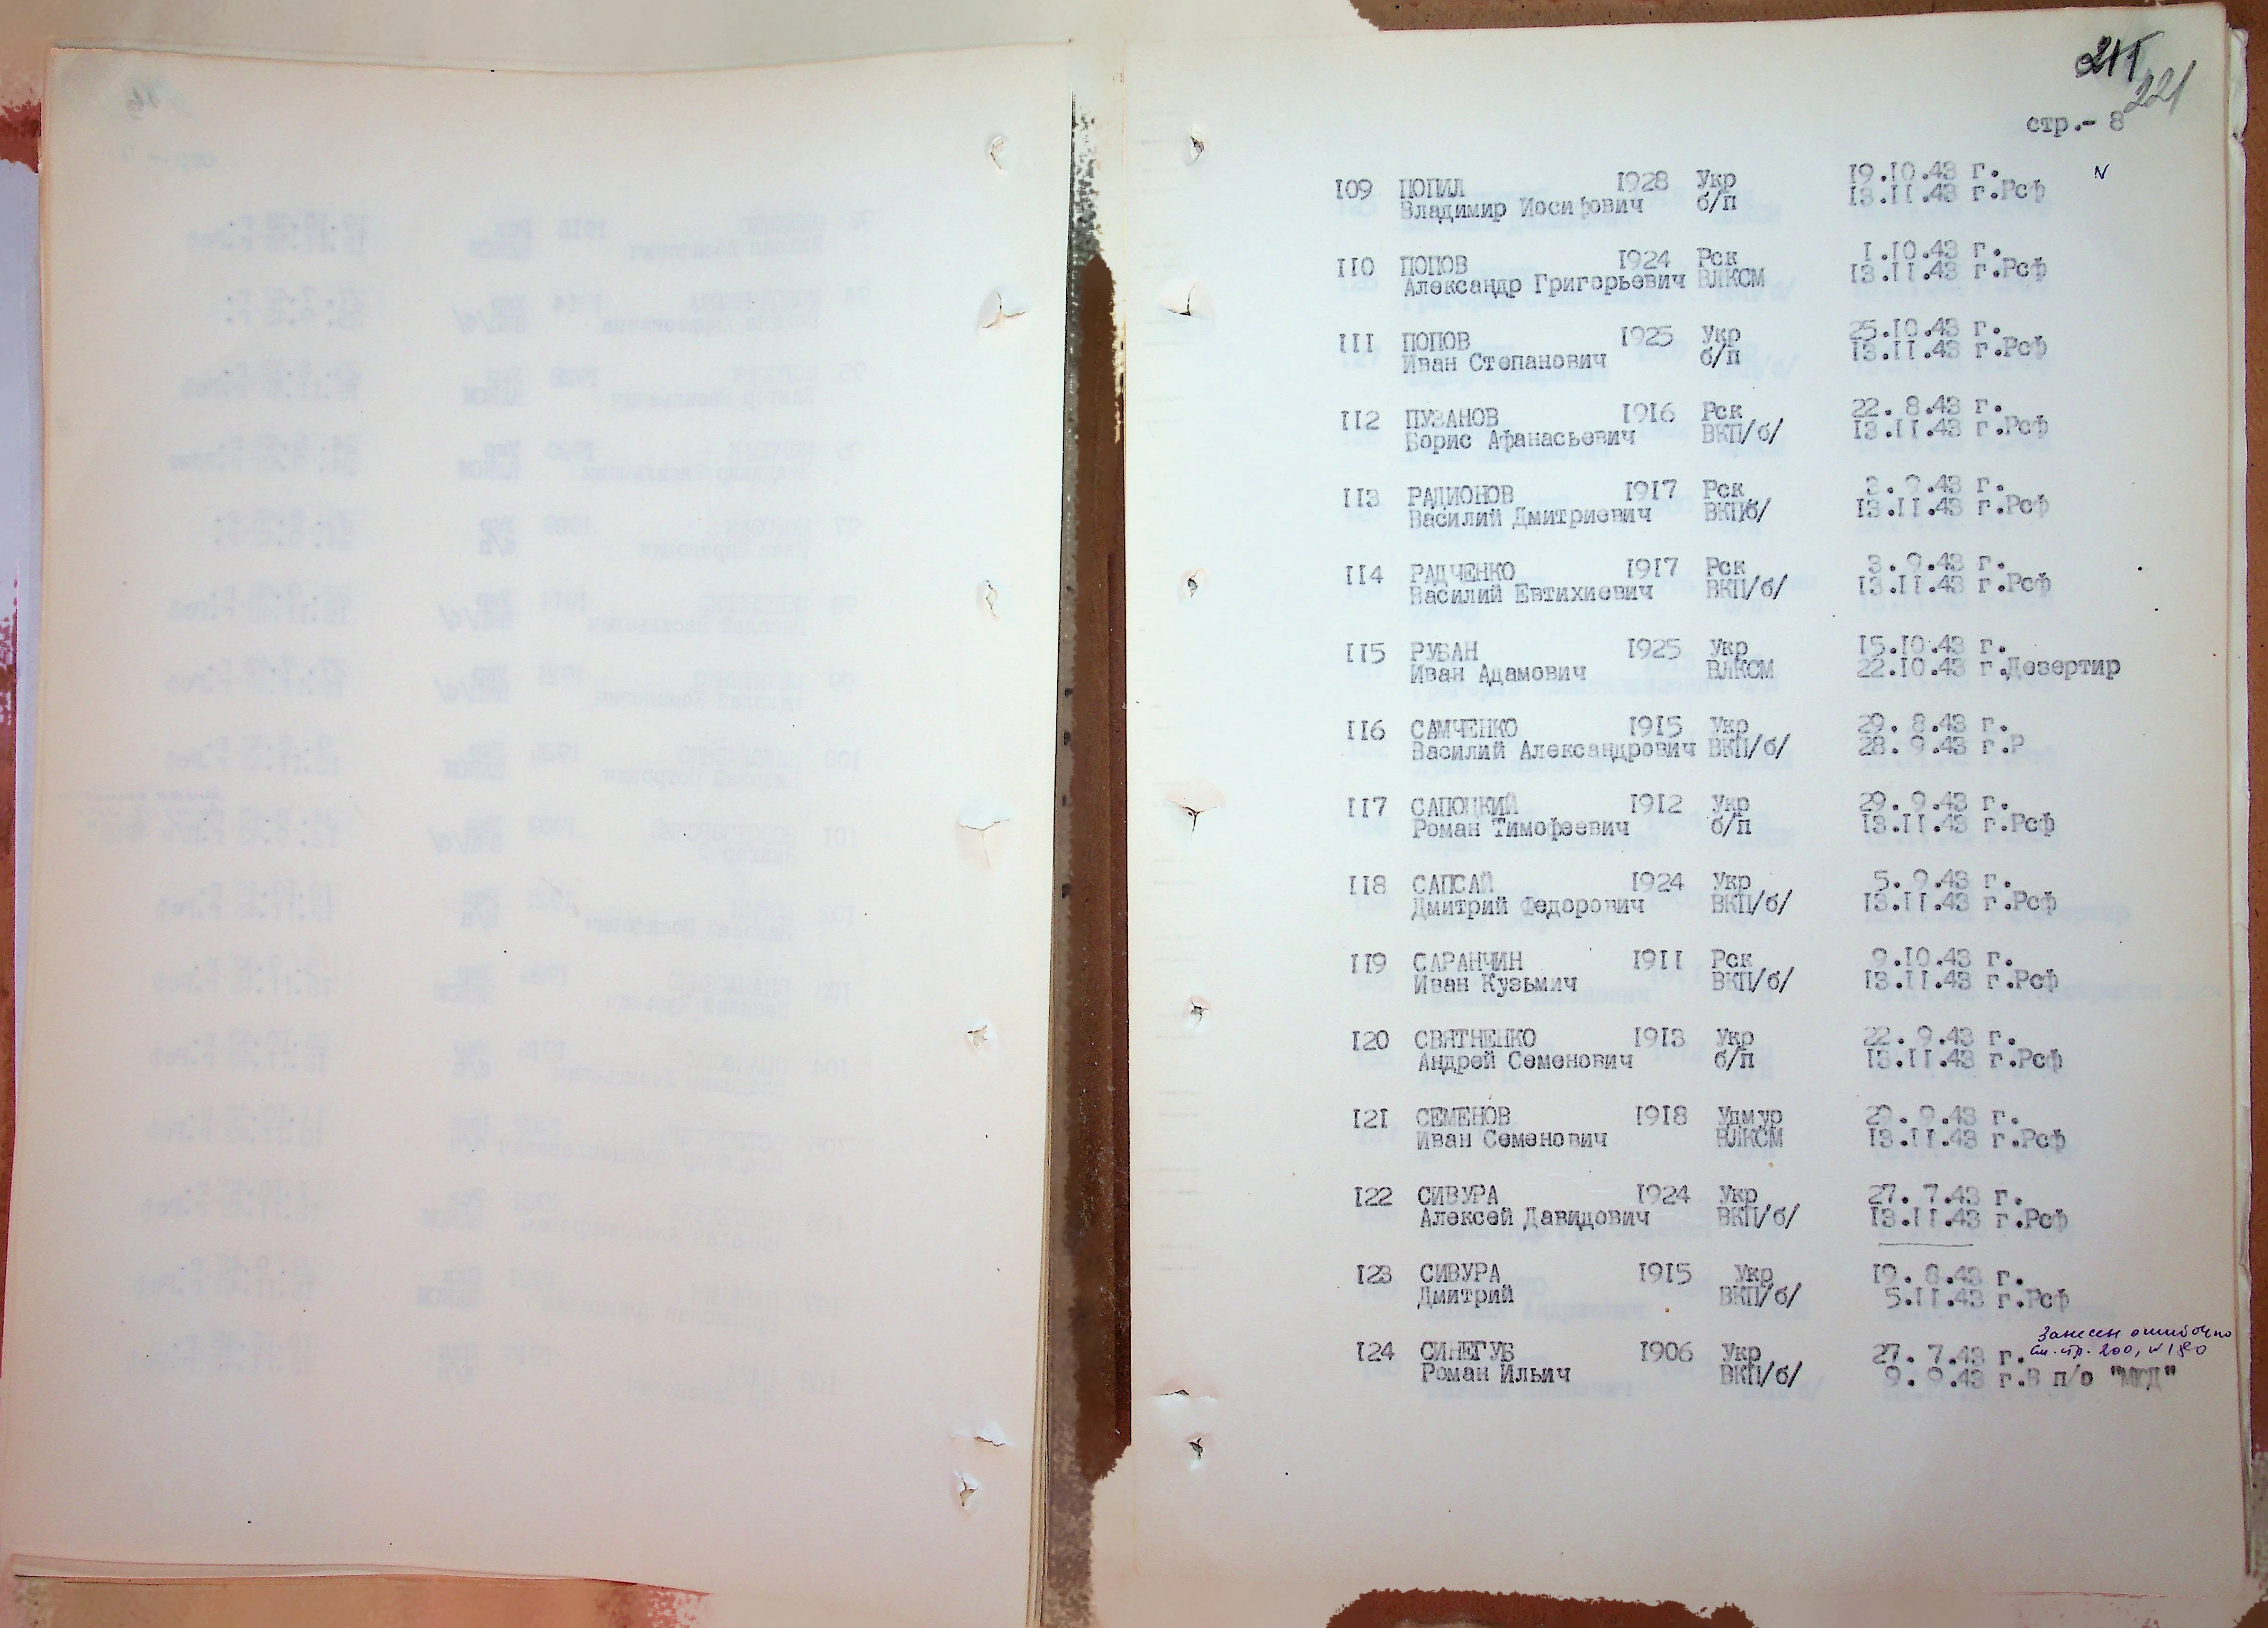 221
стр.- 8
109 ПОПИЛ 1928 Укр 19.10.43 г.
Владимир Иосифович б/п 13.11.43 г.Рсф
110 ПОПОВ 1924 Рск 1.10.43 г.
Александр Григорьевич ВЛКСМ 13.11.43 г.Рсф
111 ПОПОВ 1925 Укр 25.10.43 г.
Иван Степанович б/п 13.11.43 г.Рсф
112 ПУЗАНОВ 1916 Рск 22. 8.43 г.
Борис Афанасьевич ВКП/б/ 13.11.43 г.Рсф
113 РАДИОНОВ 1917 Рск 3. 9.43 г.
Василий Дмитриевич ВКПб/ 13.11.43 г.Рсф
114 РАДЧЕНКО 1917 Рск 3. 9.43 г.
Василий Евтихиевич ВКП/б/ 13.11.43 г.Рсф
115 РУБАН 1925 Укр 15.10.43 г.
Иван Адамович ВЛКСМ 22.10.43 г.Дезертир
116 САМЧЕНКО 1915 Укр 29. 8.43 г.
Василий Александрович ВКП/б/ 28. 9.43 г.Р
117 САПОЦКИЙ 1912 Укр 29. 9.43 г.
Роман Тимофеевич б/п 13.11.43 г.Рсф
118 САПСАЙ 1924 Укр 5. 9.43 г.
Дмитрий Федорович ВКП/б/ 13.11.43 г.Рсф
119 САРАНЧИН 1911 Рск 9.10.43 г.
Иван Кузьмич ВКП/б/ 13.11.43 г.Рсф
120 СВЯТНЕНКО 1913 Укр 22. 9.43 г.
Андрей Семенович б/п 13.11.43 г.Рсф
121 СЕМЕНОВ 1918 Удмур 29. 9.43 г.
Иван Семенович ВЛКСМ 13.11.43 г.Рсф
122 СИВУРА 1924 Укр 27. 7.43 г.
Алексей Давидович ВКП/б/ 13.11.43 г.Рсф
123 СИВУРА 1915 Укр 19. 8.43 г.
Дмитрий ВКП/б/ 5.11.43 г.Рсф
Занесен ошибочно
см. стр. 200, N 180
124 СИНЕГУБ 1906 Укр 27. 7.43 г.
Роман Ильич ВКП/б/ 9. 9.43 г.В п/о